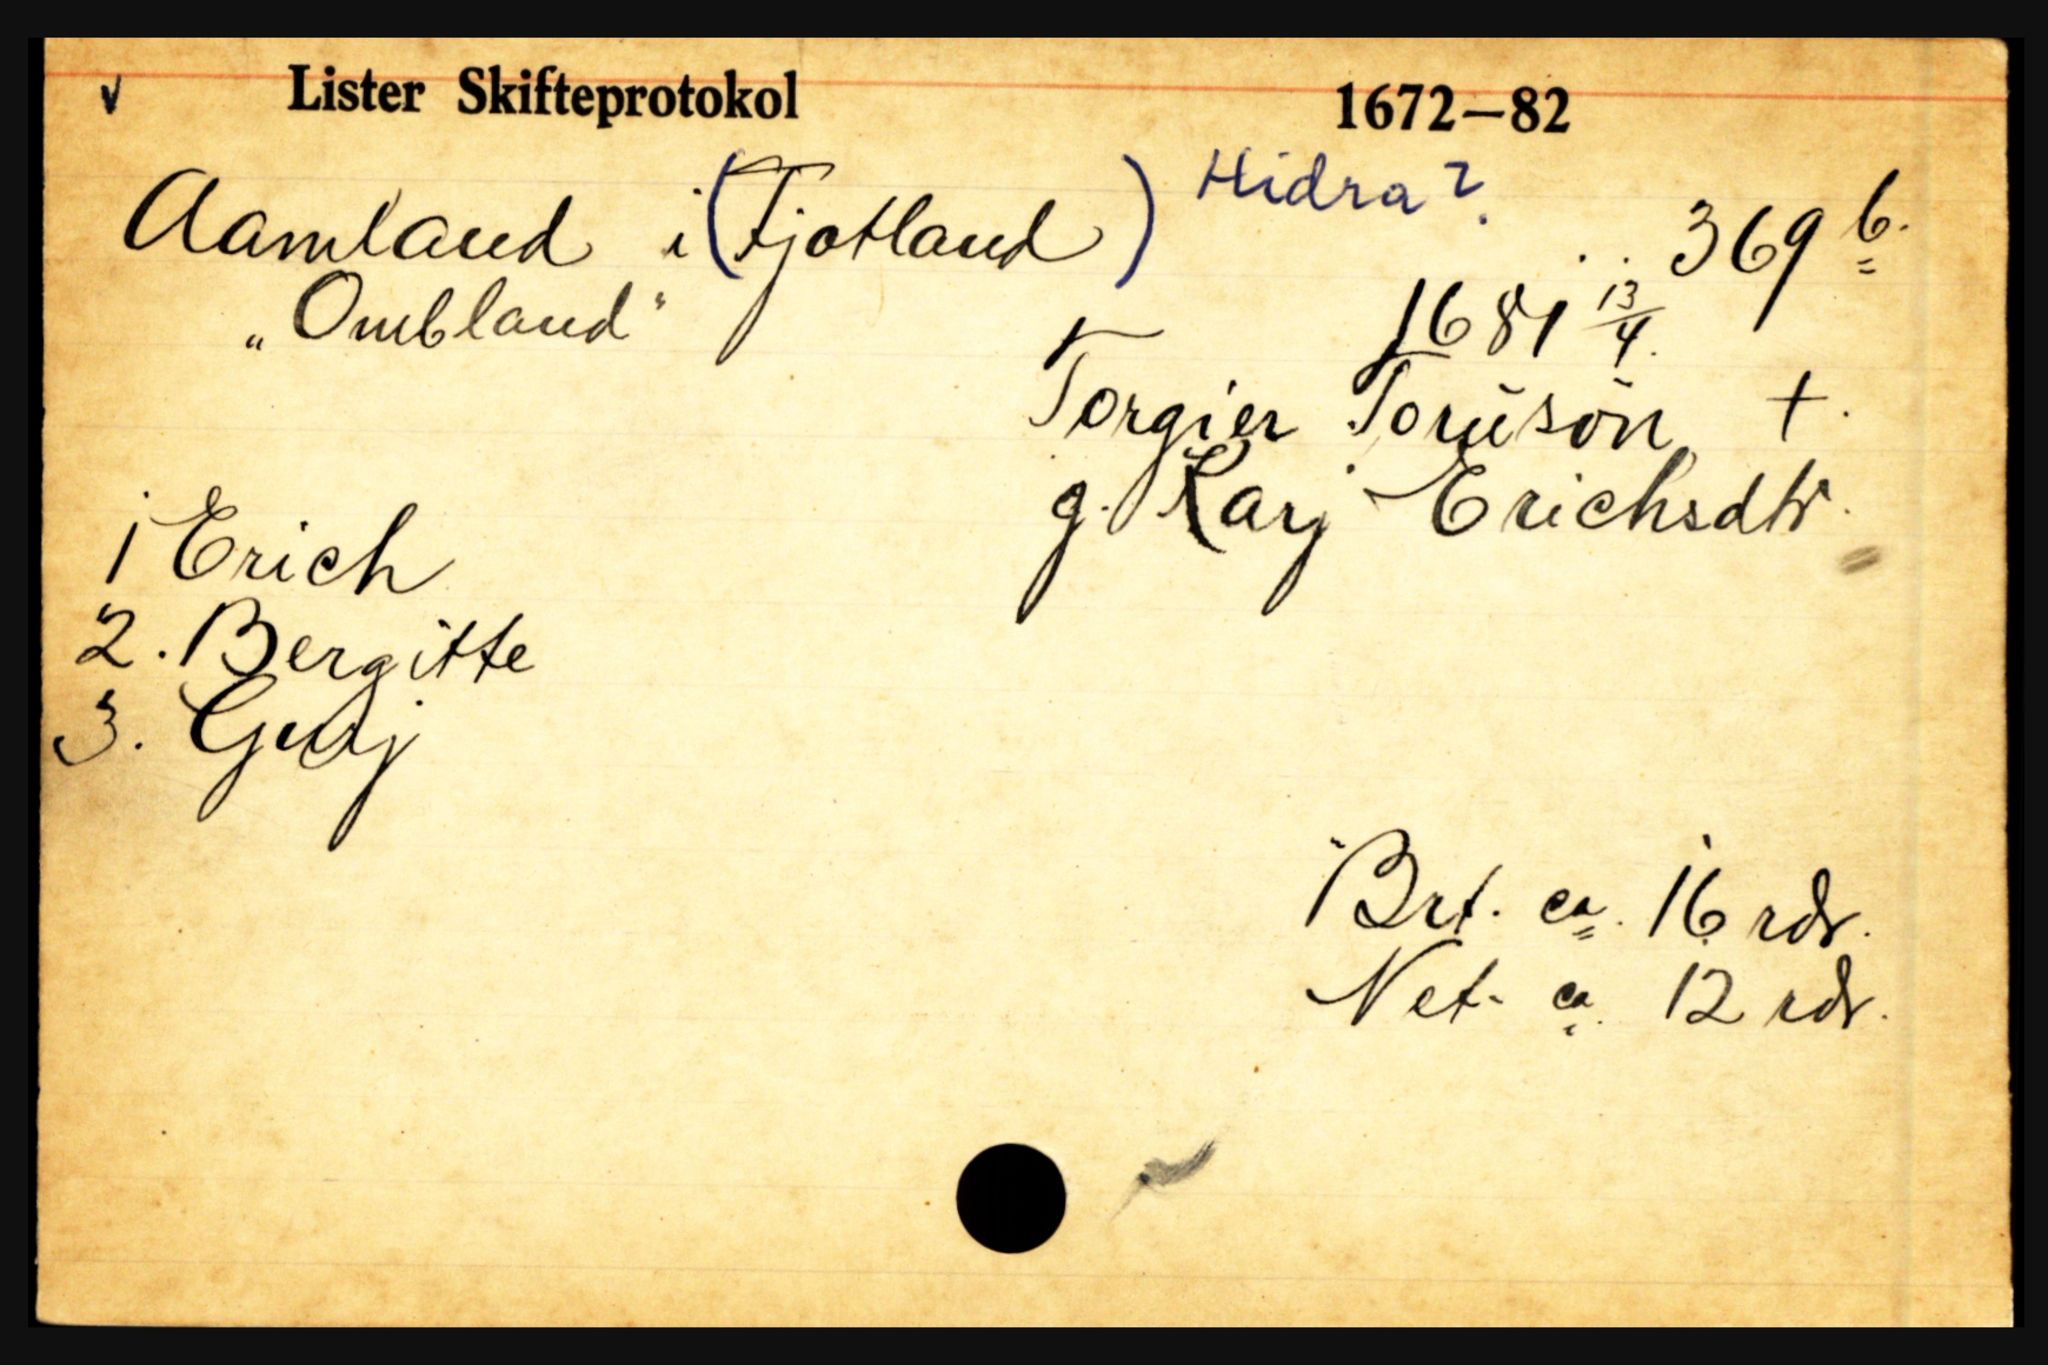 v Lister Skifteprotokol 1672–82
Aamland i (Fjotland) Hidra?
. . 369 b.
„Ombland" 1681 13/4.
Torgier Toruĕsön +.
g. Karj Erichsdtr.
1 Erich
2. Bergitte
3. Gurj
Brt. ca. 16 rdr.
Net. ca. 12 rdr.